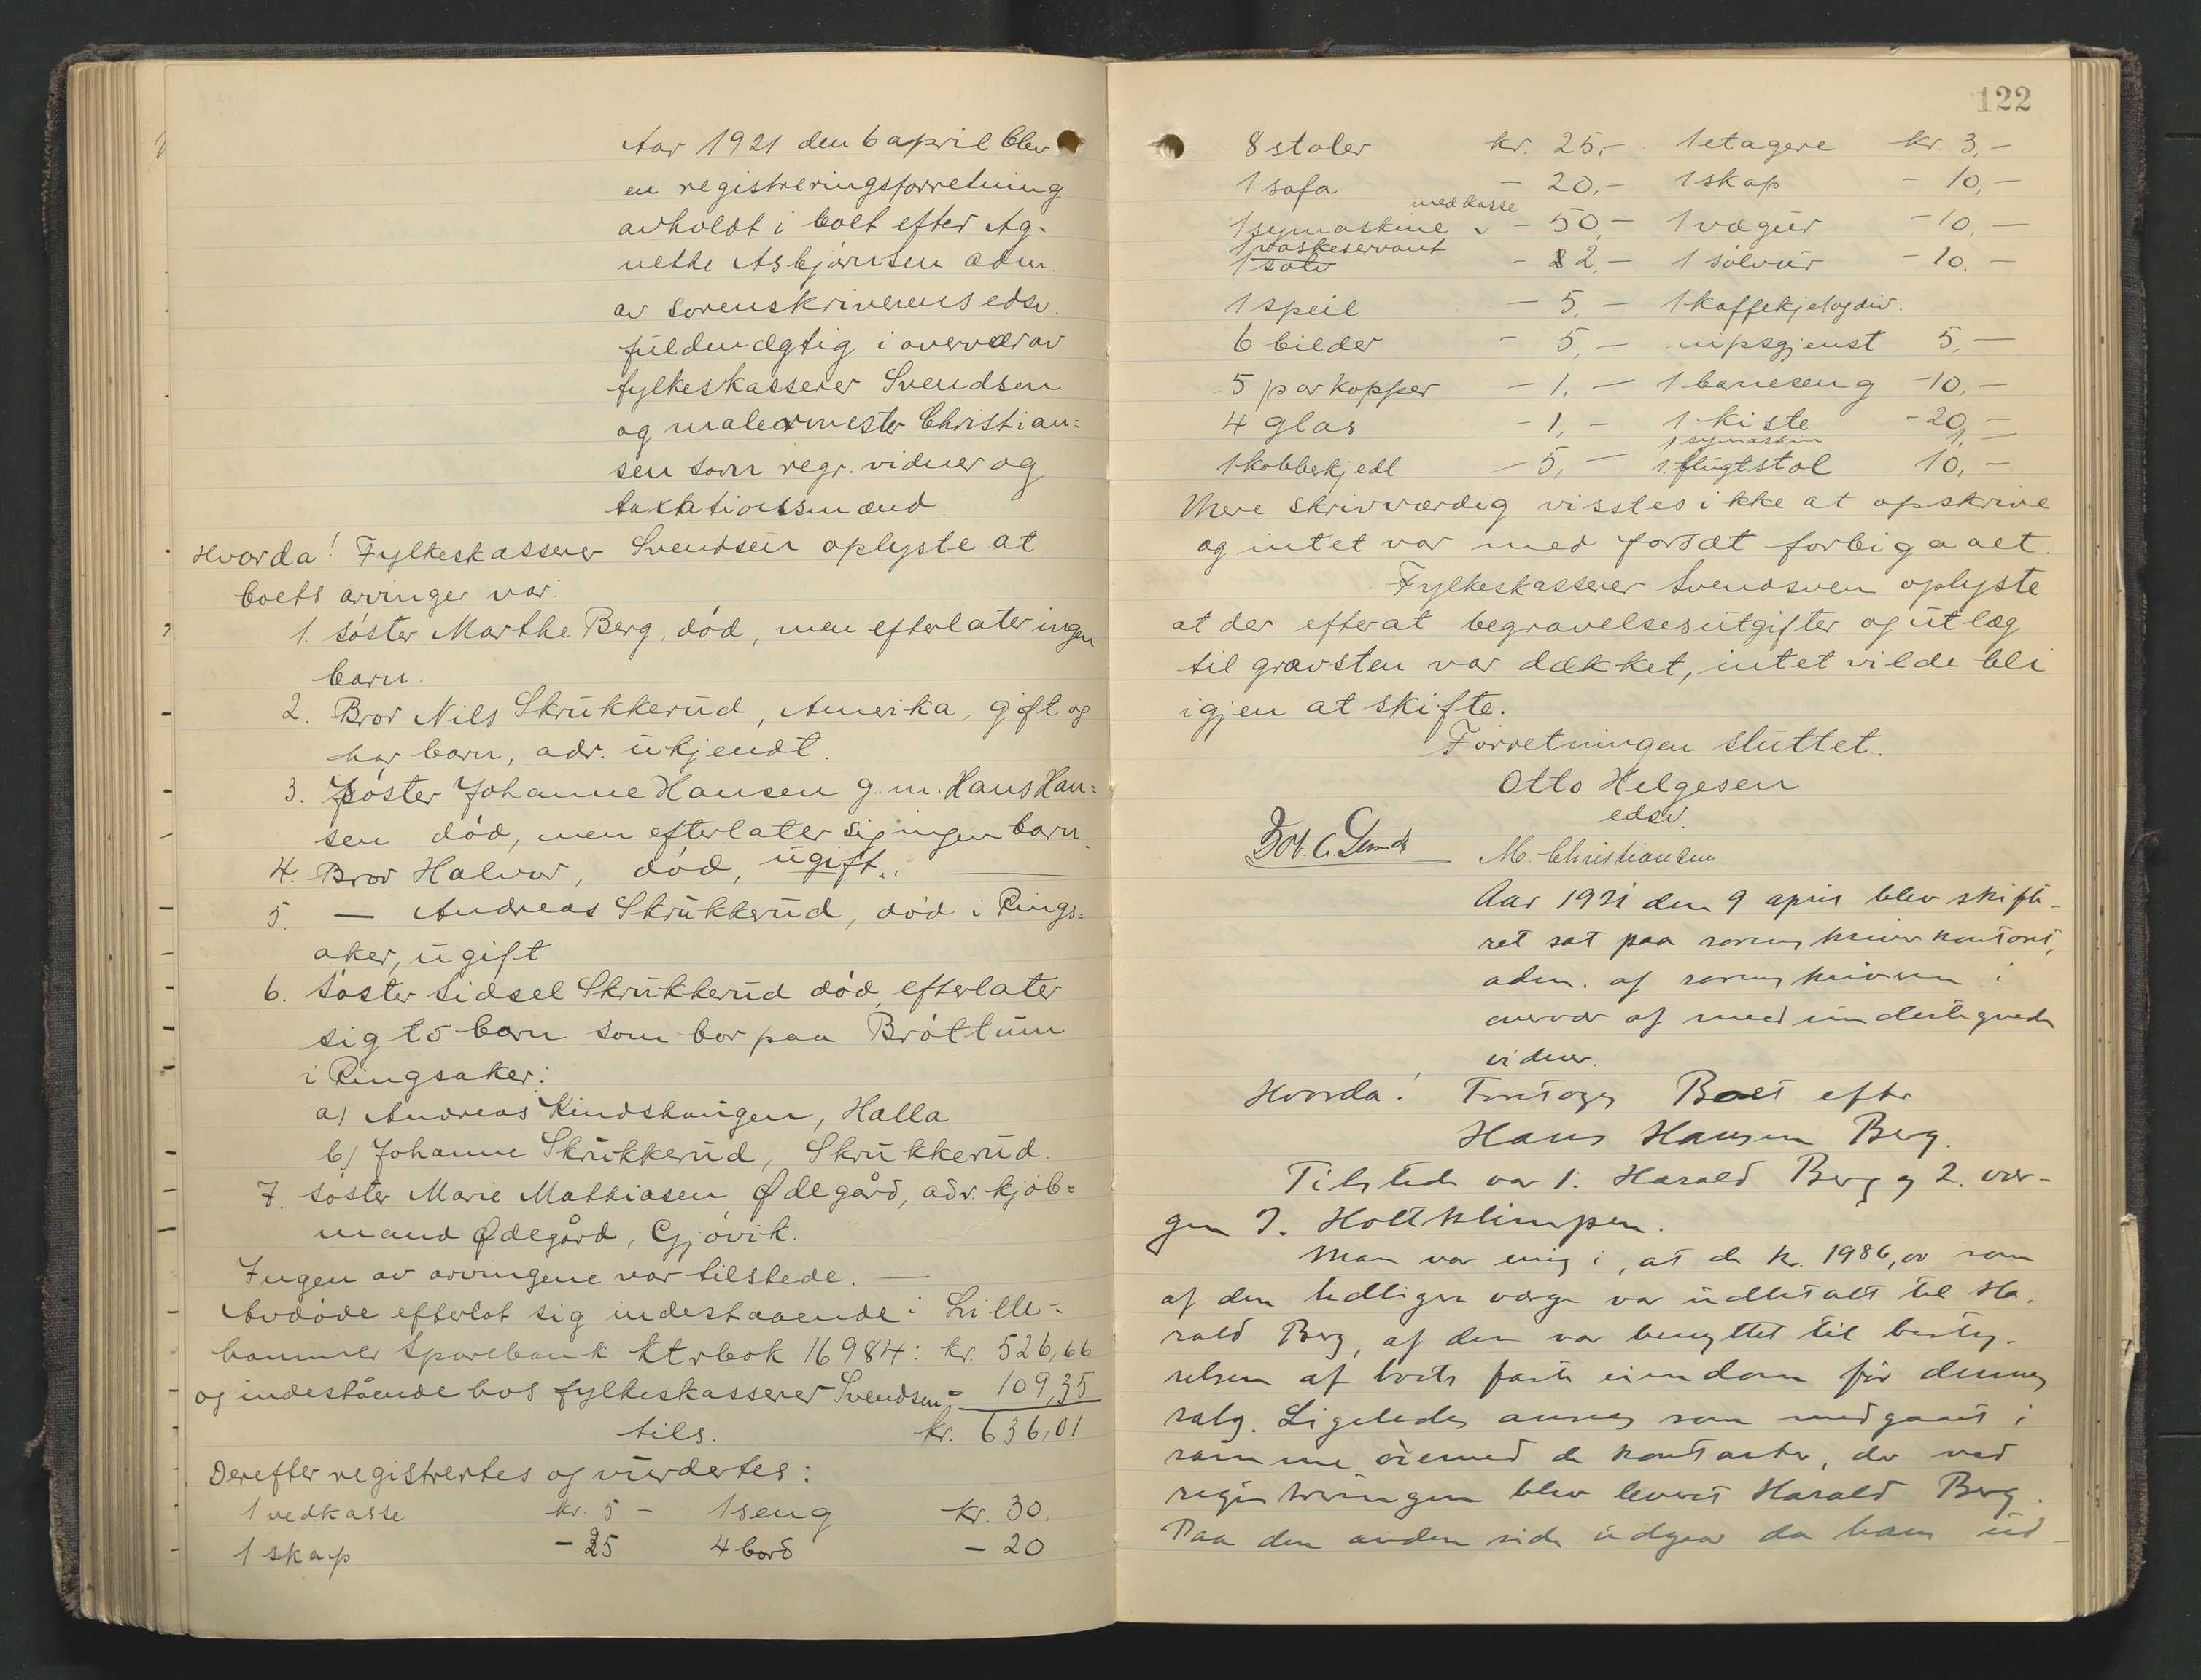 Aar 1921 den 6 april blev
en registreringsforretning
avholdt i boet efter Ag-
nethe Asbjørnsen adm.
av sorenskriverens edsv.
fuldmægtig i overvær av
fylkeskasserer Svendsen
og malermester Christian=
sen som regr. vidner og
taxtationsmænd
Hvorda! Fylkeskasserer Svendsen oplyste at
boets arvinger var:
1. søster Marthe Berg, død, men efterlater ingen
barn.
2. Bror Nils Skrukkerud, Amerika, gift og
har barn, adr. ukjendt.
3. Søster Johanne Hansen g. m. Hans Han=
sen død, men efterlater sig ingen barn.
4. Bror Halvor, død, ugift.
5. — Andreas Skrukkerud, død i Rings=
aker, ugift
6. søster Sidsel Skrukkerud død, efterlater
sig to barn som bor paa Brøttum
i Ringsaker:
a) Andreas Kindshaugen, Halla
b) Johanne Skrukkerud, Skrukkerud.
7. søster Marie Mathiasen Ødegård, adr. kjøb=
mand Ødegård, Gjøvik.
Ingen av arvingene var tilstede. —
Avdøde efterlot sig indestaaende i Lille=
hammer Sparebank ktrbok 16984: kr. 526,66
og indestående hos fylkeskasserer Svendsen - 109,35
tils. kr. 636,01
Derefter registrertes og vurdertes:
1 vedkasse kr. 5 - 1 seng kr. 30.
1 skap - 25 4 bord - 20
122
8 stoler kr. 25,- 1 etagere kr. 3,-
1 sofa - 20,- 1 skap - 10,-
med kasse
1 symaskine - 50,- 1 vægur - 10,-
1 vaskeservant
1 sølv - 2,- 1 sølvur - 10.-
1 speil - 5,- 1 kaffekjel og div.
6 bilder - 5,- nipsgjenst 5,-
5 par kopper - 1,- 1 barneseng - 10,-
4 glas - 1,- 1 kiste - 20,-
1 symaskin 1,-
1 kobbekjedl - 5,- 1 flugtstol 10,-
Mere skrivværdig visstes ikke at opskrive
og intet var med forsæt forbigaaet.
Fylkeskasserer Svendsven oplyste
at der efterat begravelsesutgifter og utlæg
til gravsten var dækket, intet vilde bli
igjen at skifte.
Forretningen sluttet.
Otto Helgesen
edsv.
M. Christiansen
Aar 1921 den 9 april blev skifte-
ret sat paa sorenskriverkontoret,
adm. af sorenskriveren i
overvær af medundertegnede
vidner.
Hvorda! Foretoges Boet efter
Hans Hansen Berg.
Tilstede var 1. Harald Berg og 2. vær-
gen J. Holtklimpen.
Man var enig i, at de kr. 1986,00 som
af den tidligere værge var udbetalt til Ha-
rald Berg, af den var benyttet til besty-
relsen af boets faste eiendom før dennes
salg. Ligeledes ansees som medgaaet i
samme øiemed de kontanter, der ved
registreringen blev leveret Harald Berg.
Paa den anden side udgaar da hans ud-